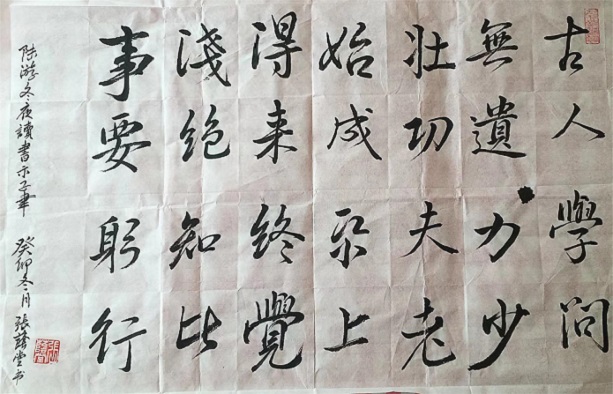 古人學問
無遺力少
壯功夫老
始成帋上
得来終覺
淺绝知此
事要躬行
陸游冬夜讀書示子聿 癸卯冬月張堂书